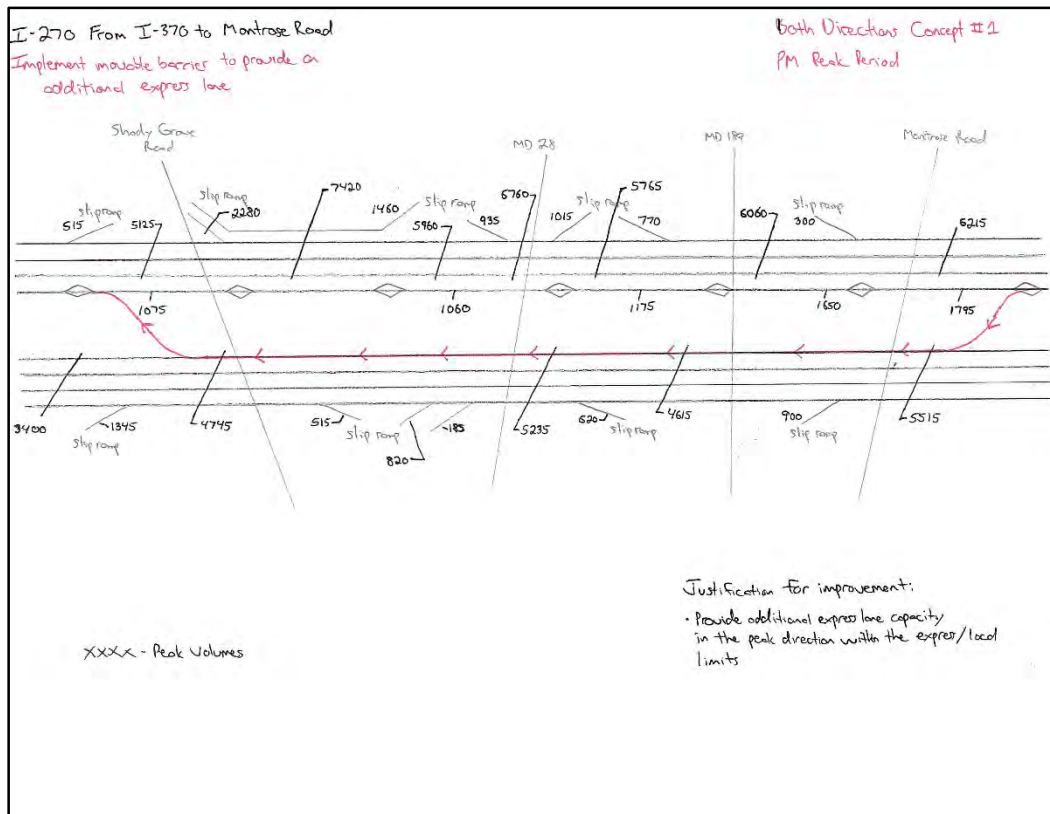 I-270 From I-370 to Montrose Road
Implement movable barrier to provide an
additional express lane
Both Directions Concept #1
PM Peak Period
Shady Grove
Road
MD 28
MD 189
Montrose Road
515
slip ramp
5125
slip ramp
2280
7420
1460
slip ramp
5960
935
6760
1015
slip ramp
5765
770
6060
slip ramp
300
6215
1075
1060
1175
1650
1795
3400
1345
slip ramp
4745
515
slip ramp
820
185
5235
620
slip ramp
4615
900
slip ramp
5515
XXXX - Peak Volumes
Justification for improvement:
• Provide additional express lane capacity
in the peak direction within the express/local
limits